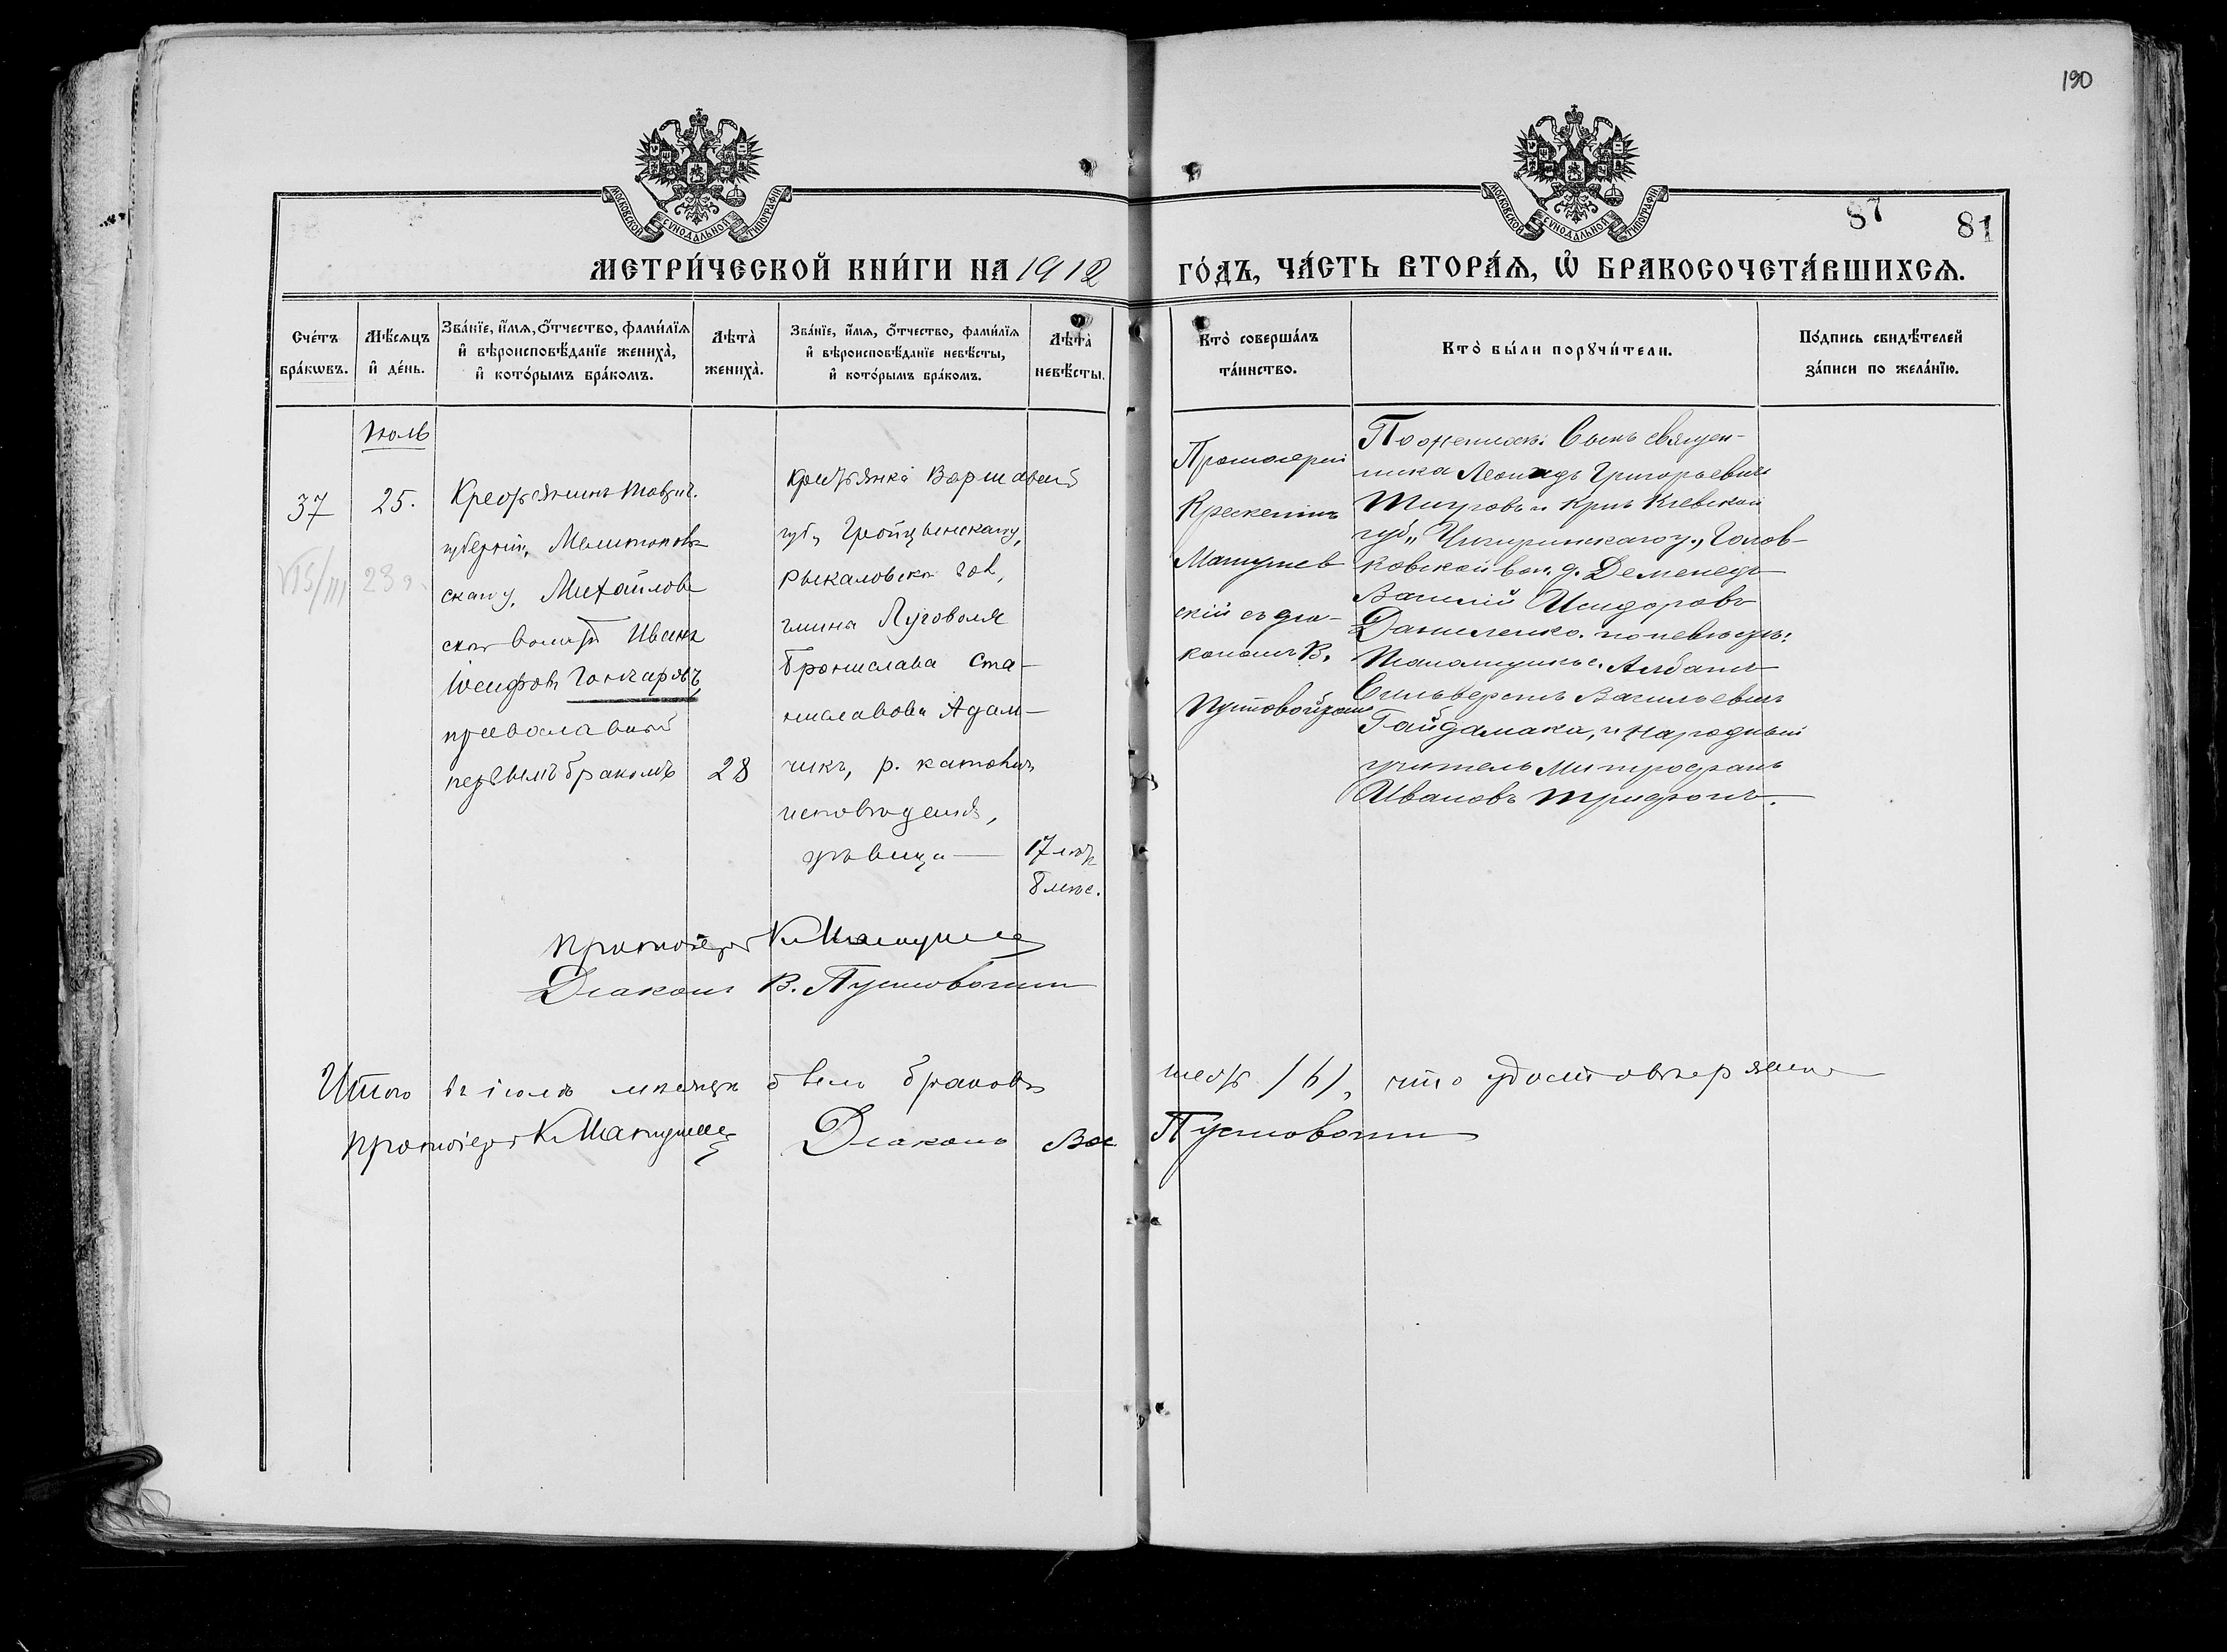 190
МОСКОВСКОЙ СУНОДАЛЬНОЙ ТИПОГРАФІИ
МОСКОВСКОЙ СУНОДАЛЬНОЙ ТИПОГРАФІИ
87
81
МЕТРИ́ЧЕСКОЙ КНИ́ГИ НА 1912
ГО́ДЪ, ЧА́СТЬ ВТОРА́Ѧ, Ѽ БРАКОСОЧЕТА́ВШИХСѦ.
Сче́тъ
бра́кѡвъ.
Мѣ́сѧцъ
и҆ де́нь.
Зва́нїе, и҆́мѧ, ѻ҆́тчество, фами́лїѧ
и҆ вѣроисповѣ́данїе жениха̀,
и҆ кото́рымъ бра́комъ.
Лѣта̀
жениха̀.
Зва́нїе, и҆́мѧ, ѻ҆́тчество, фами́лїѧ
и҆ вѣроисповѣ́данїе невѣ́сты,
и҆ кото́рымъ бра́комъ.
Лѣта̀
невѣ́сты.
Кто̀ соверша́лъ
та́инство.
Кто̀ бы́ли порꙋчи́тели.
По́дпись свидѣ́телей
за́писи по жела́нїю.
Іюль
37
25.
Крестьянинъ Тавричъ.
губерніи, Мелитополь
скаго у. Михайлов
ской волости Иванъ
Іосифовъ Гончаровъ,
православный
первымъ бракомъ
28
Крестьянка Варшавской
губ., Гройцынскаго у,
гмина Луговоля
Бронислава Ста-
ниславова Адам-
чикъ, р. католич
исповѣденія,
дѣвица
17 лѣтъ
8 мѣс.
Протоіерей
Крескентъ
Матушев
скій съ діа-
кономъ В.
Пустовойтомъ
По женихѣ: Сынъ священ-
ника Леонидъ Григорьевичъ
и крес. Кіевской
губ., Чигиринскаго у., Голов-
ковской вол. д. Деменецъ
Василій Исидоровъ
Даниленко. по невѣстѣ:
Псаломщикъ с. Албашъ
Сильверстъ Васильевичъ
Гайдамака, и народный
учитель Митрофанъ
Ивановъ Трифонъ.
Протоіерей К. Матушев
Діаконъ В. Пустовойтъ
Итого въ іюлѣ мѣсяцѣ было браковъ шесть /6/, что удостовѣряемъ
Протоіерей К. Матушев Діаконъ Вас. Пустовойтъ